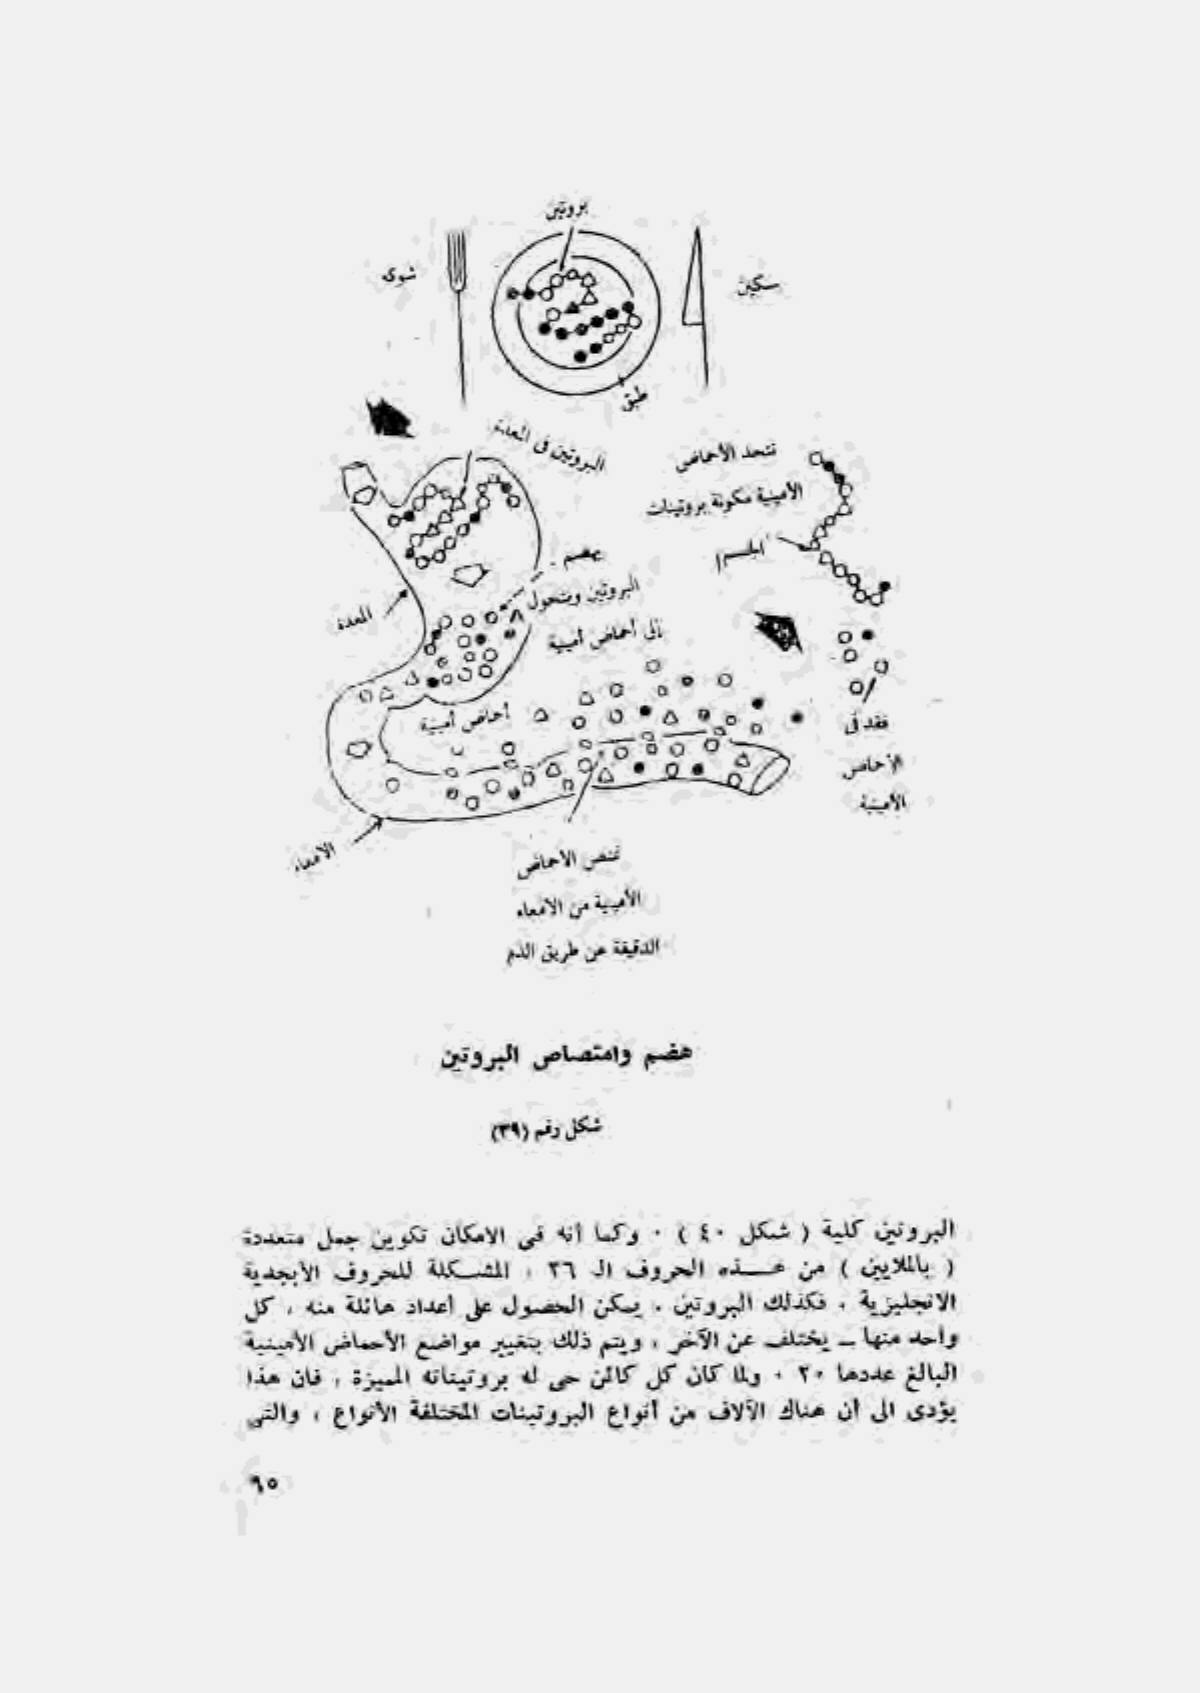 بروتين
شوكى
سكين
طبق
البروتين فى المعدة
تتحد الأحماض
الأمينية مكونة بروتينات
الجسم
يهضم
البروتين ويتحول
إلى أحماض أمينية
المعدة
أحماض أمينية
فقد فى
الأحماض
الأمينية
الأمعاء
تمتص الأحماض
الأمينية من الأمعاء
الدقيقة عن طريق الدم
هضم وامتصاص البروتين
شكل رقم (٣٩)
البروتين كلية ( شكل ٤٠ ) ٠ وكما أنه فى الامكان تكوين جمل متعددة
( بالملايين ) من هــذه الحروف الـ ٢٦ ، المشـكلة للحروف الأبجدية
الانجليزية ، فكذلك البروتين ، يمكن الحصول على أعداد هائلة منه ، كل
واحد منها – يختلف عن الآخر ، ويتم ذلك بتغيير مواضع الأحماض الأمينية
البالغ عددها ٢٠ ، ولما كان كل كائن حى له بروتيناته المميزة ، فان هذا
يؤدى الى أن هناك الآلاف من أنواع البروتينات المختلفة الأنواع ، والتى
٦٥